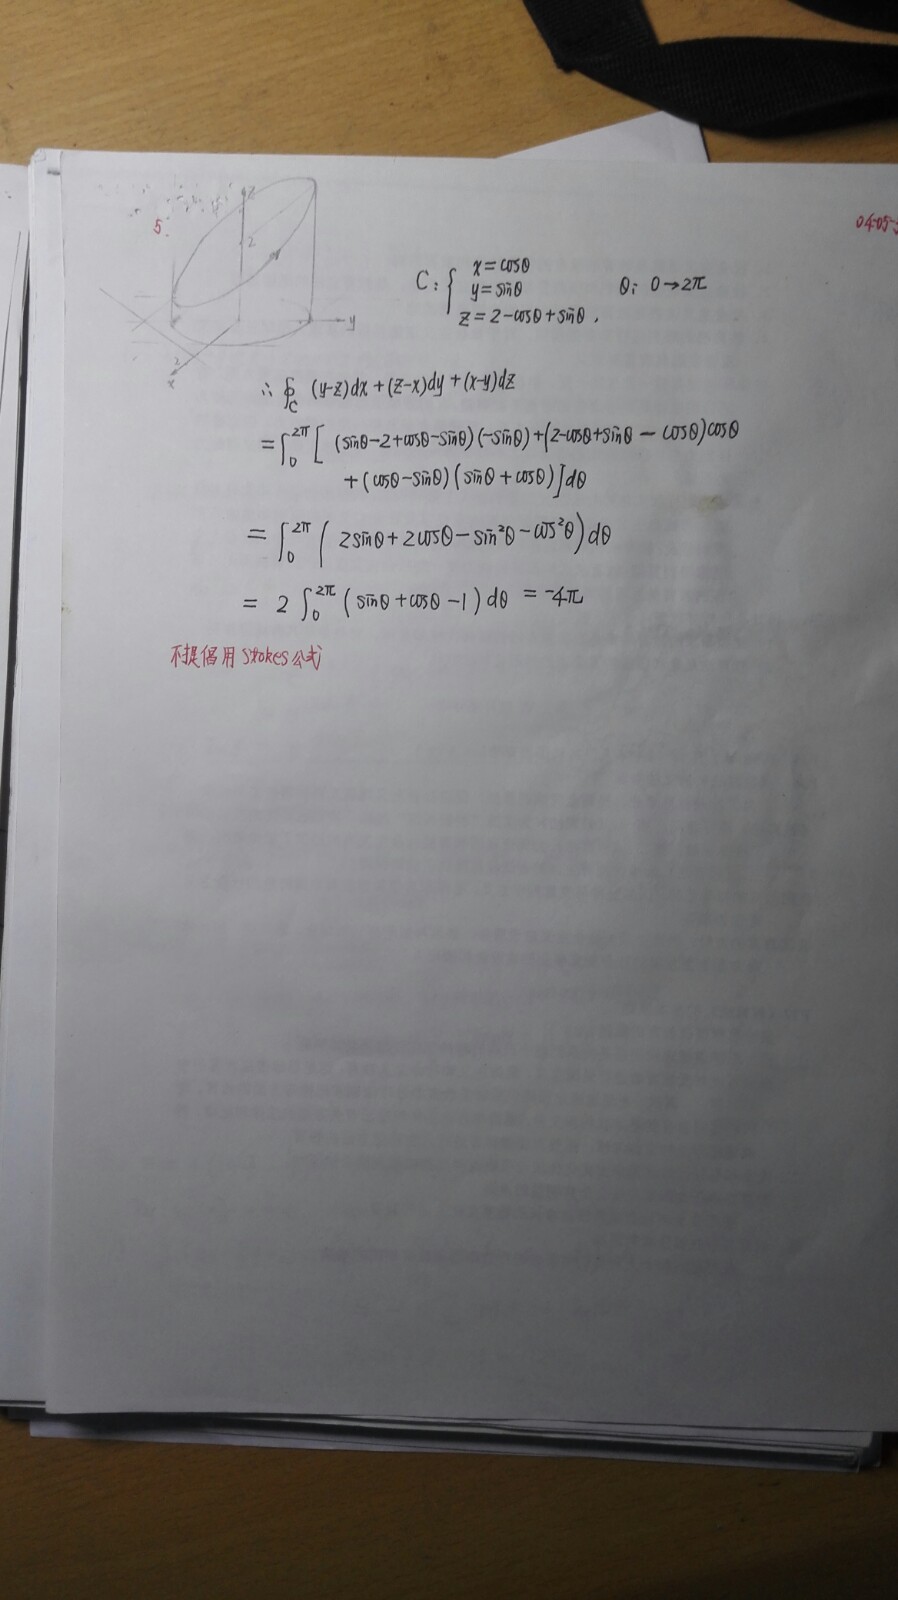 04-05-
5.
z
2
y
2
x
C: { x=cosθ
y=sinθ θ: 0→2π
z=2-cosθ+sinθ.
∴ ∮_C (y-z)dx+(z-x)dy+(x-y)dz
=∫_0^{2π} [ (sinθ-2+cosθ-sinθ)(-sinθ)+(2-cosθ+sinθ-cosθ)cosθ
+(cosθ-sinθ)(sinθ+cosθ)]dθ
= ∫_0^{2π} ( 2sinθ+2cosθ-sin²θ-cos²θ)dθ
= 2 ∫_0^{2π} (sinθ+cosθ-1) dθ = -4π
不提倡用Stokes公式